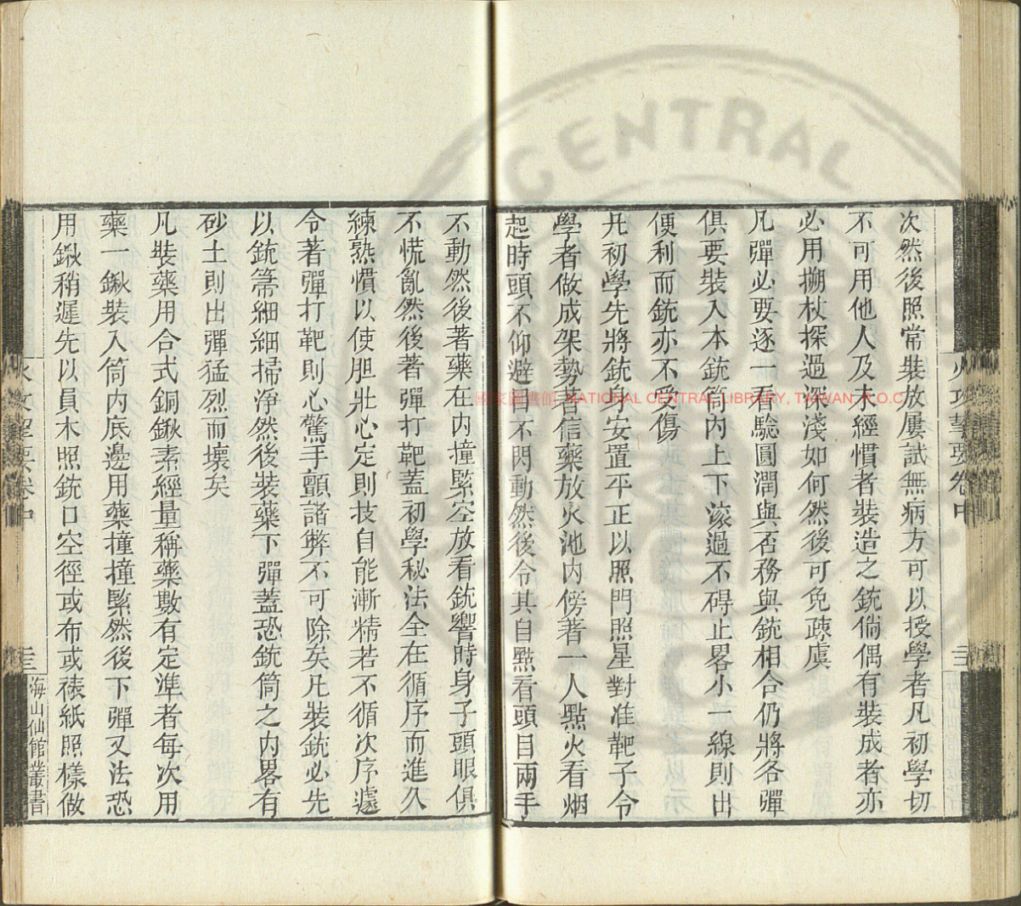 次然後照常裝放屢試無病方可以授學者凡初學切
不可用他人及未經慣者裝造之銃倘偶有裝成者亦
必用搠杖探過深淺如何然後可免疎虞
凡彈必要逐一看驗圓潤與否務與銃相合仍將各彈
俱要裝入本銃筒内上下滚過不碍止畧小一線則出
便利而銃亦不受傷
凡初學先將銃身安置平正以照門照星對准靶子令
學者做成架勢著信藥放火池内傍著一人點火看烟
起時頭不仰避目不閃動然後令其自點看頭目兩手
不動然後著藥在内撞緊空放看銃響時身子頭眼俱
不慌亂然後著彈打靶蓋初學秘法全在循序而進久
練熟慣以使胆壯心定則技自能漸精若不循次序遽
令著彈打靶則心驚手顫諸弊不可除矣凡裝銃必先
以銃箒細細掃净然後裝藥下彈蓋恐銃筒之内畧有
砂土則出彈猛烈而壞矣
凡裝藥用合式銅鍬素經量稱藥數有定準者每次用
藥一鍬裝入筒内底邊用藥撞撞緊然後下彈又法恐
用鍬稍遲先以員木照銃口空徑或布或裱紙照樣做
火攻挈要卷中
海山仙館叢書
國家圖書館 NATIONAL CENTRAL LIBRARY, TAIWAN, R.O.C
CENTRAL